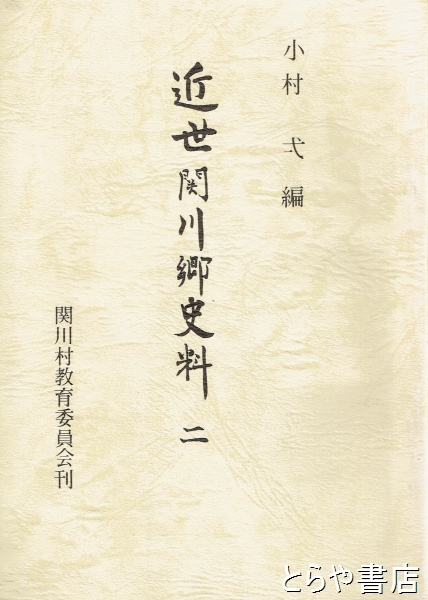 小村弌編
近世関川郷史料 二
関川村教育委員会刊
とらや書店